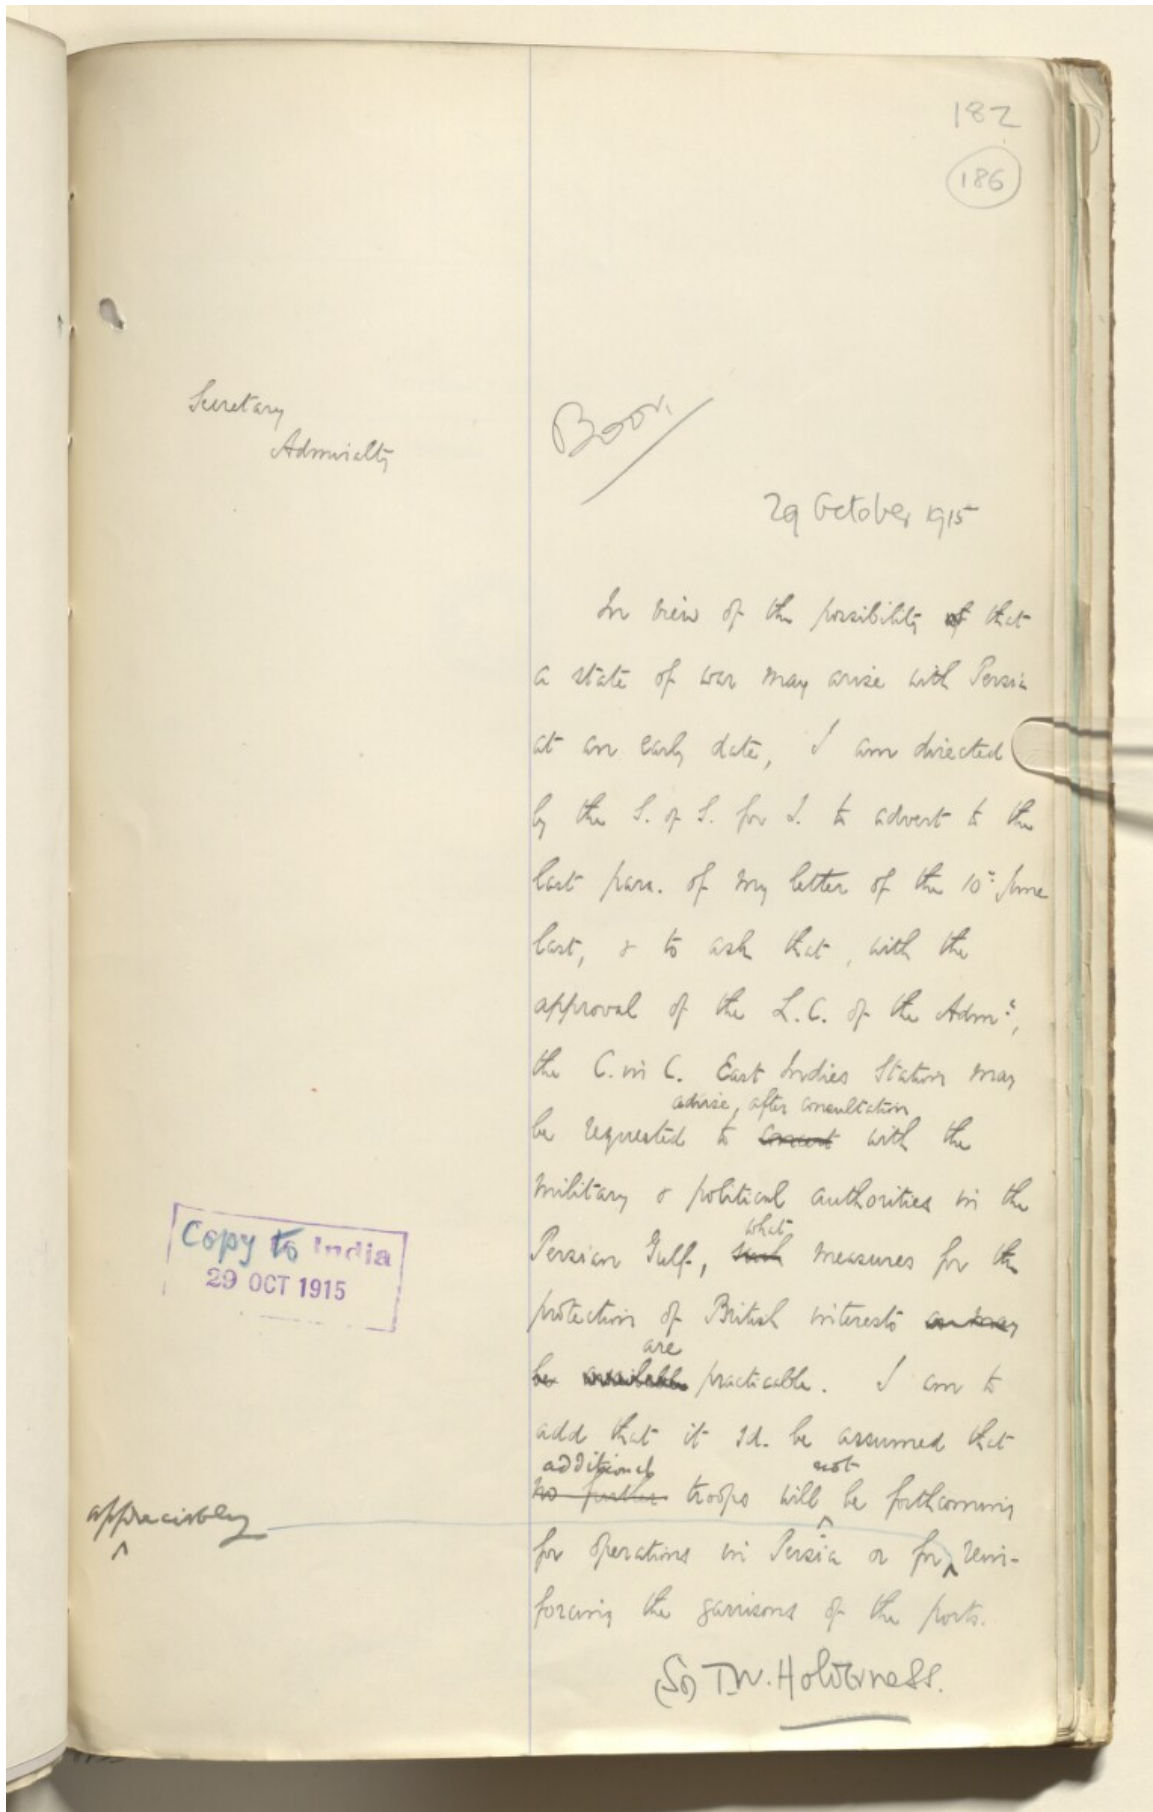 182
186
Secretary
Admiralty
29 October 1915
In view of the possibility of that
a state of war may arise with Persia
at an early date, I am directed
by the S. of S. for I. to advert to the
last para. of my letter of the 10th June
last, & to ask that, with the
approval of the L.C. of the Admy,
the C. in C. East Indies Station may
advise, after consultation
be requested to concert with the
military & political authorities in the
what
Persian Gulf, such measures for the
protection of British interests as may
are
be available practicable. I am to
add that it sd. be assumed that
additional not
no further troops will be forthcoming
for operations in Persia or for rein-
appreciably
forcing the garrisons of the ports.
(Sd) T.W. Holderness.
Copy to India
29 OCT 1915